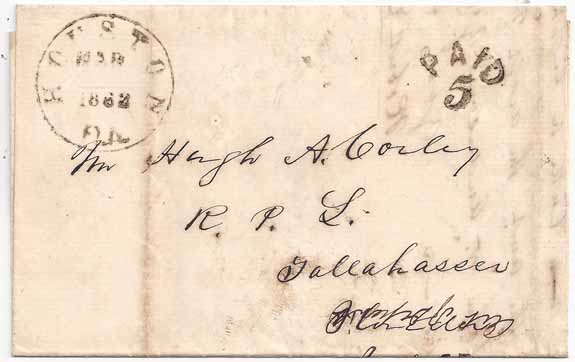 HOUSTON
MAR
1862
PAID
5
Mr Hugh A. Corley
R. P. L.
Tallahassee